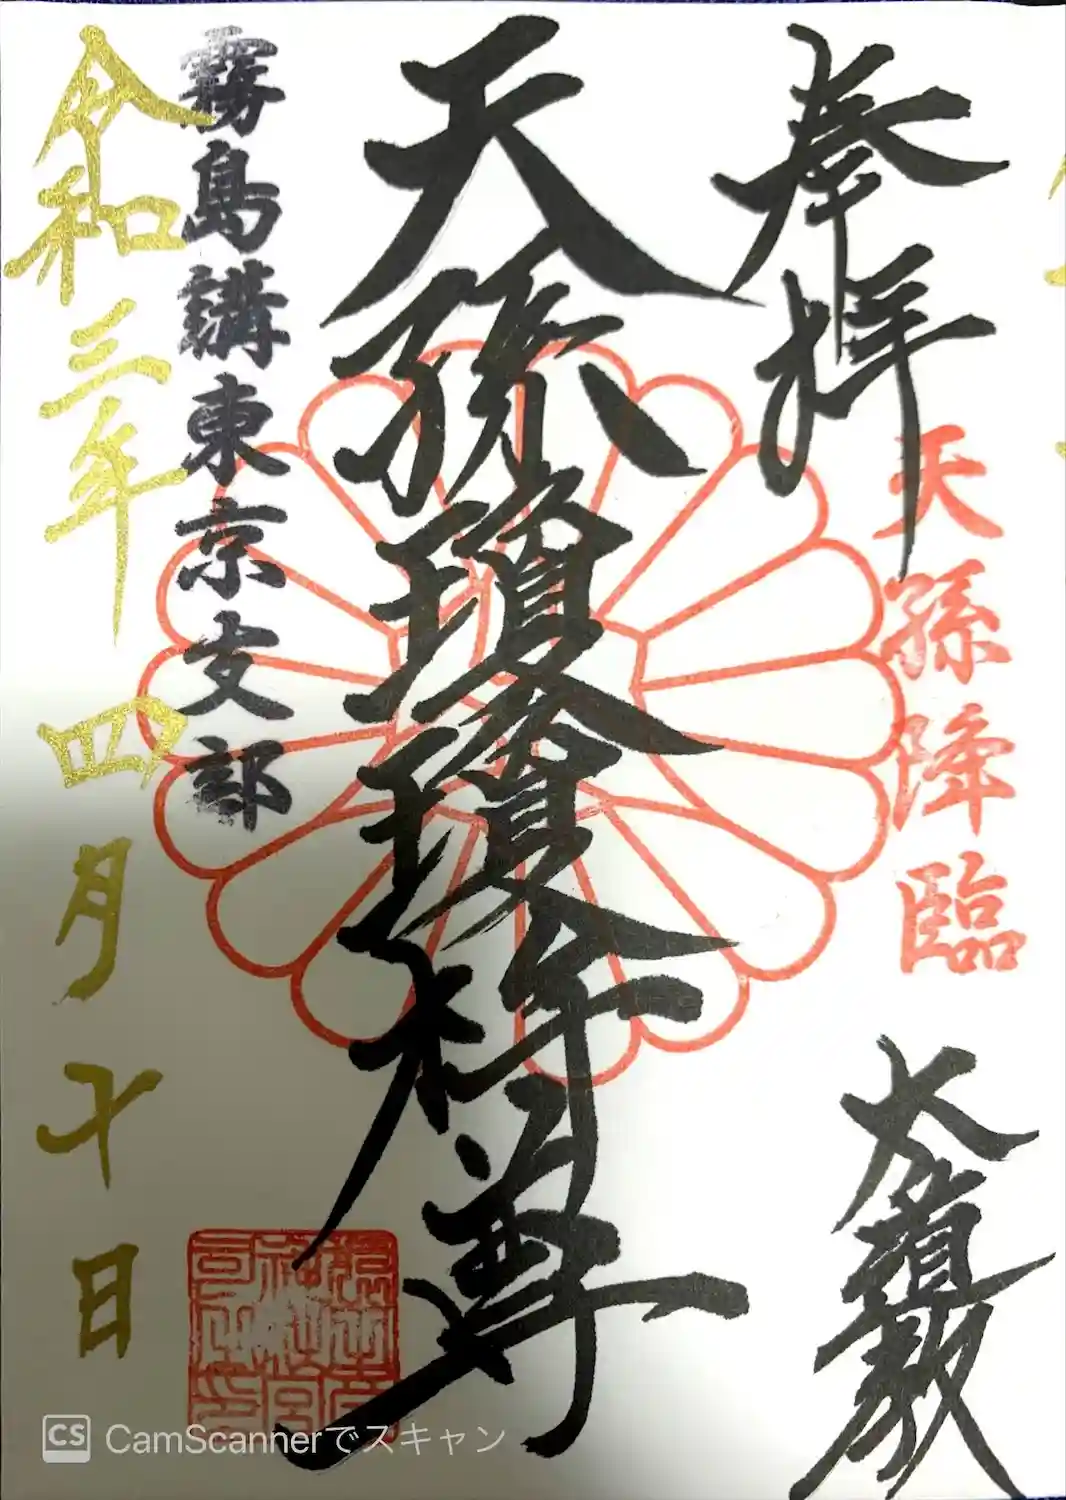 奉拝
天孫降臨
大道教
天孫瓊瓊杵尊
霧島講東京支部
令和三年四月十日
CS CamScannerでスキャン